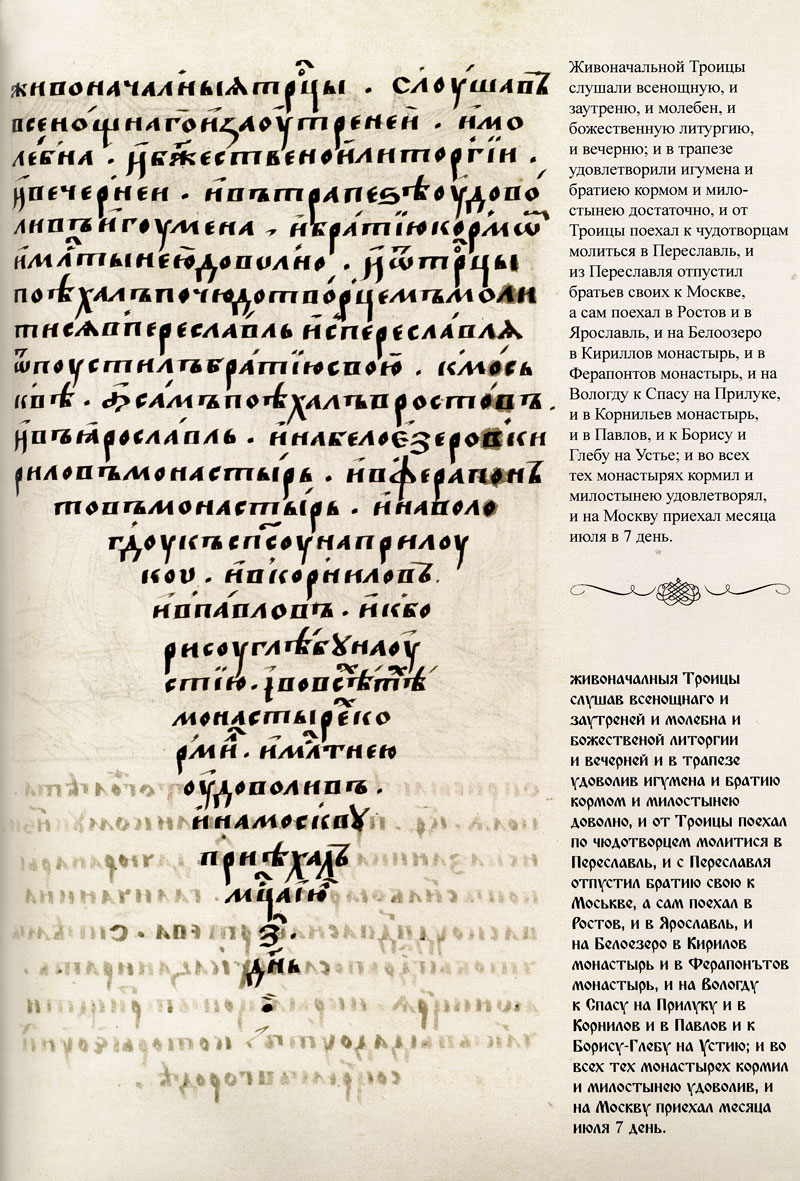 живоначалныѧ трⷪ҇цы . слоушавъ
всенощнаго и заоутреней . и мо
лебна . и бж҃ественои литоргїи .
и вечернеи . и въ трапезѣ оудово
ливъ игоумена , и братїю кормѡⷨ
и млⷭ҇тынею доволно . и ѿ трⷪ҇цы
поѣхалъ по чюдотворцемъ моли
тисѧ в переславль и с переславлѧ
ѿпоустилъ братїю свою . к мось
квѣ . а самъ поѣхалъ в ростовъ .
и въ ярославль . и на белоезеро в ки
риловъ монастырь . и в ферапон
товъ монастырь . и на воло
гдоу къ сп҃соу на прилоу
коу . и в корниловъ .
и в павловъ . и к бо
рисоу глѣбꙋ на оу
стїю . і во всѣⷯ тѣⷯ
монастырѣⷯ ко
рмиⷧ . и млⷭ҇тнею
оудоволивъ .
и на москвꙋ
приѣхалъ
мцⷭ҇а іюⷧ
з҃ .
днь
Живоначальной Троицы
слушали всенощную, и
заутреню, и молебен, и
божественную литургию,
и вечерню; и в трапезе
удовлетворили игумена и
братиею кормом и мило-
стынею достаточно, и от
Троицы поехал к чудотворцам
молиться в Переславль, и
из Переславля отпустил
братьев своих к Москве,
а сам поехал в Ростов и в
Ярославль, и на Белоозеро
в Кириллов монастырь, и в
Ферапонтов монастырь, и на
Вологду к Спасу на Прилуке,
и в Корнильев монастырь,
и в Павлов, и к Борису и
Глебу на Устье; и во всех
тех монастырях кормил и
милостынею удовлетворял,
и на Москву приехал месяца
июля в 7 день.
живоначалныя Троицы
слушав всенощнаго и
заутреней и молебна и
божественой литоргии
и вечерней и в трапезе
удоволив игумена и братию
кормом и милостынею
доволно, и от Троицы поехал
по чюдотворцем молитися в
Переславль, и с Переславля
отпустил братию свою к
Моськве, а сам поехал в
Ростов, и в Ярославль, и
на Белоезеро в Кирилов
монастырь и в Ферапонътов
монастырь, и на Вологду
к Спасу на Прилуку и в
Корнилов и в Павлов и к
Борису-Глебу на Устию; и во
всех тех монастырех кормил
и милостынею удоволив, и
на Москву приехал месяца
июля 7 день.